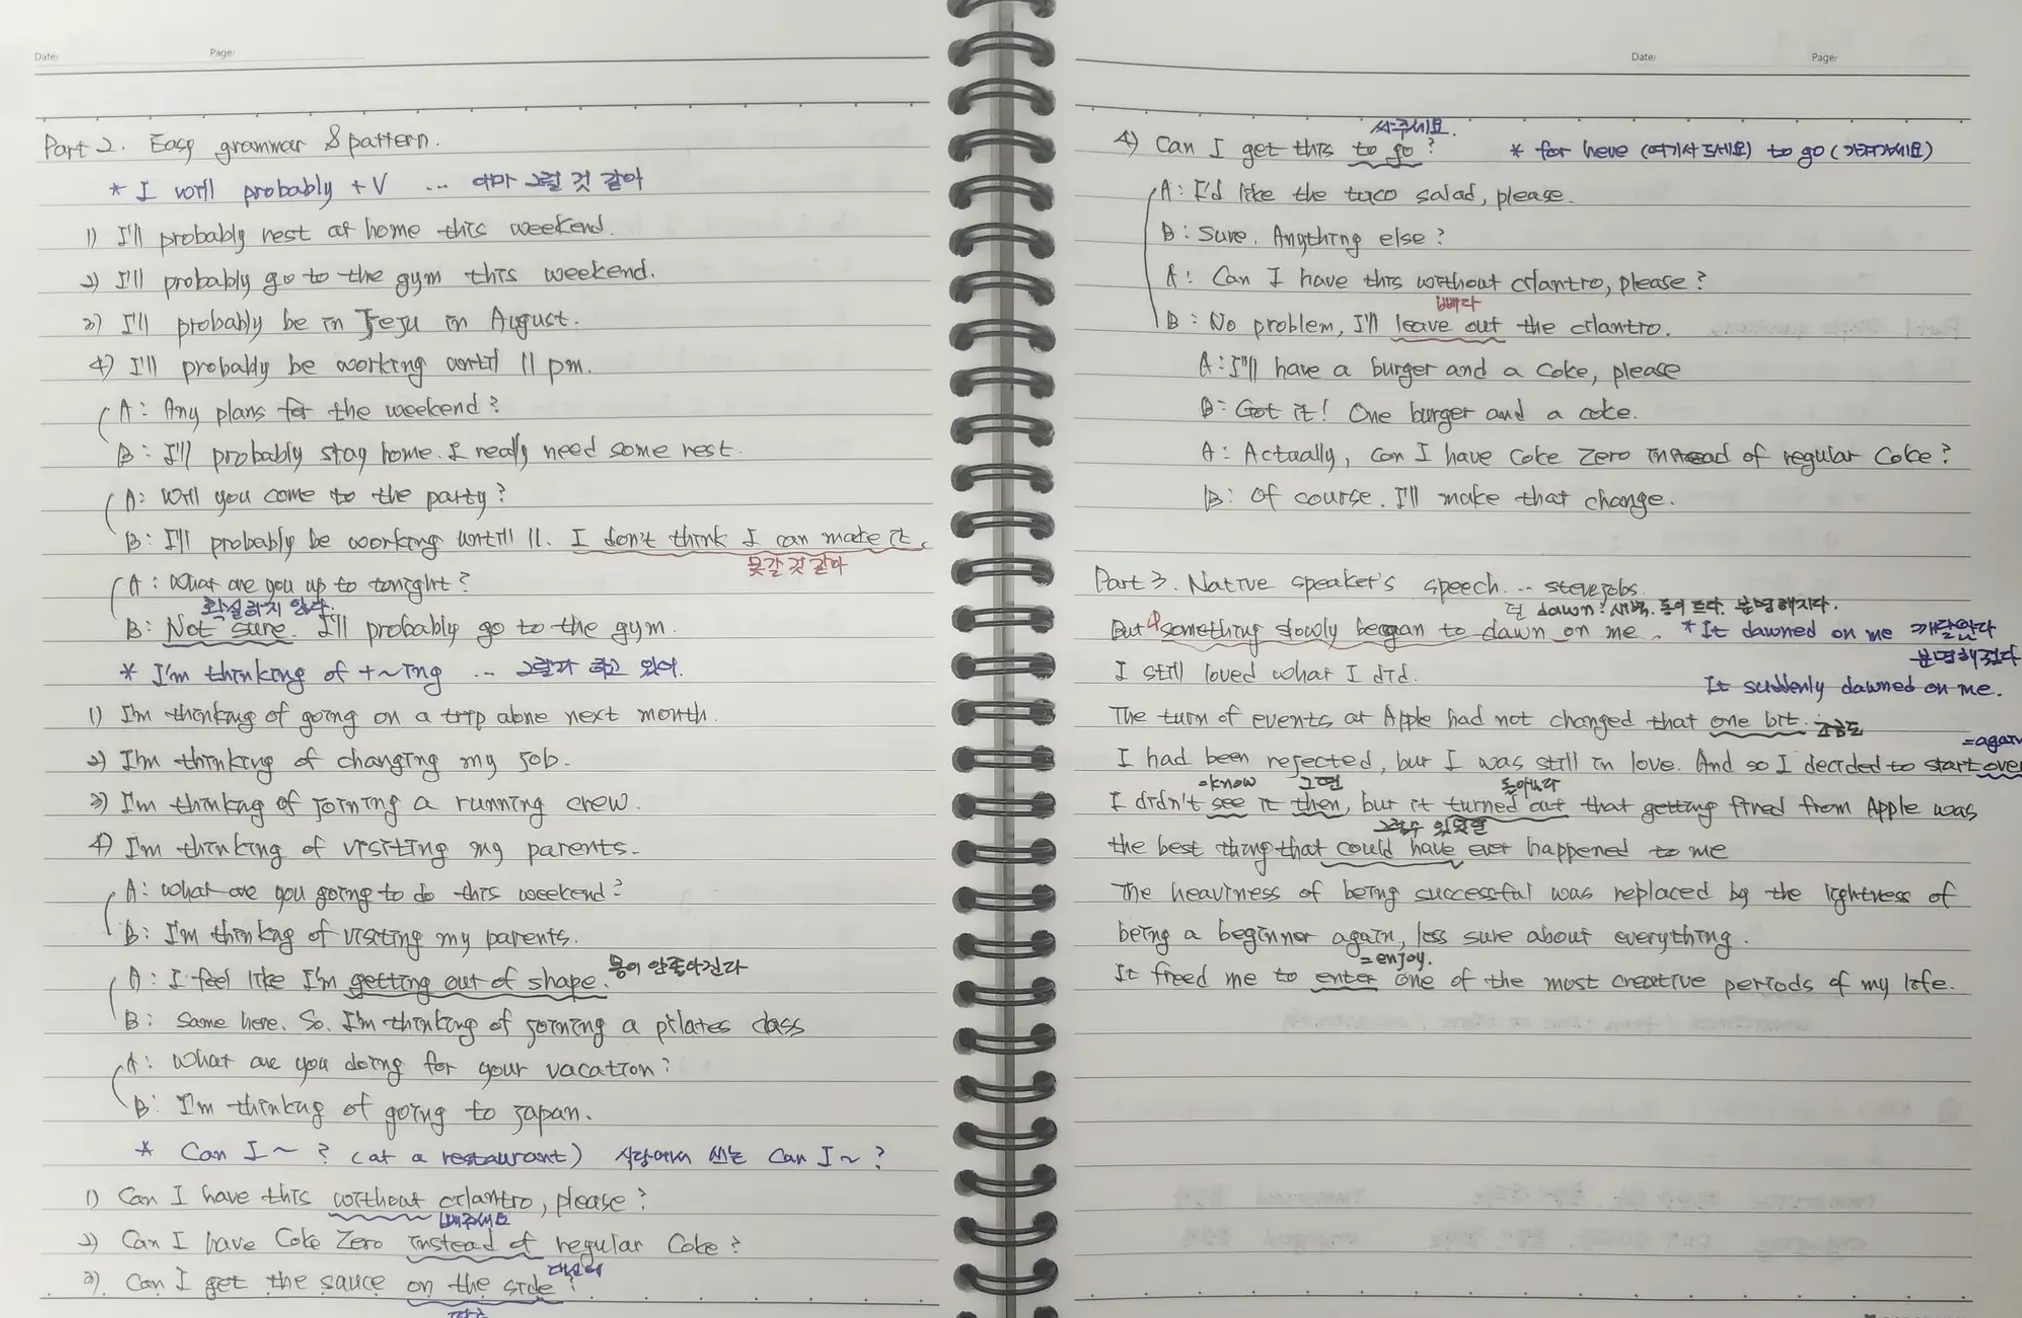 Date:
Page:
Part 2. Easy grammar & pattern.
* I will probably + V ... 아마 그럴 것 같아
1) I'll probably rest at home this weekend.
2) I'll probably go to the gym this weekend.
3) I'll probably be in Jeju in August.
4) I'll probably be working until 11 pm.
A: Any plans for the weekend?
B: I'll probably stay home. I really need some rest.
A: Will you come to the party?
B: I'll probably be working untill 11. I don't think I can make it.
못갈 것 같아
A: What are you up to tonight?
확실하지 않다.
B: Not sure. I'll probably go to the gym.
* I'm thinking of + ~ing ... 그럴까 하고 있어.
1) I'm thinking of going on a trip alone next month.
2) I'm thinking of changing my job.
3) I'm thinking of joining a running crew.
4) I'm thinking of visiting my parents.
A: What are you going to do this weekend?
B: I'm thinking of visiting my parents.
A: I feel like I'm getting out of shape. 몸이 안좋아진다
B: Same here. So. I'm thinking of joining a pilates class
A: What are you doing for your vacation?
B: I'm thinking of going to Japan.
* Can I ~ ? (at a restaurant) 식당에서 쓰는 Can I ~ ?
1) Can I have this without cilantro, please?
빼주세요
2) Can I have Coke Zero instead of regular Coke?
대신에
3) Can I get the sauce on the side?
Date:
Page:
싸주세요.
4) Can I get this to go? * for here (여기서 드세요) to go (가져가세요)
A: I'd like the taco salad, please.
B: Sure. Anything else?
A: Can I have this without cilantro, please?
빼다
B: No problem, I'll leave out the cilantro.
A: I'll have a burger and a coke, please
B: Got it! One burger and a coke.
A: Actually, can I have Coke Zero instead of regular Coke?
B: Of course. I'll make that change.
Part 3. Native speaker's speech ... steve jobs.
dawn: 새벽. 동이 트다. 분명해지다.
But something slowly began to dawn on me. * It dawned on me 깨달았다
분명해졌다
I still loved what I did.
It suddenly dawned on me.
The turn of events at Apple had not changed that one bit. 조금도
=again
I had been rejected, but I was still in love. And so I decided to start over
know 그때 돌아보니
I didn't see it then, but it turned out that getting fired from Apple was
the best thing that could have ever happened to me
The heaviness of being successful was replaced by the lightness of
being a beginner again, less sure about everything.
=enjoy.
It freed me to enter one of the most creative periods of my life.